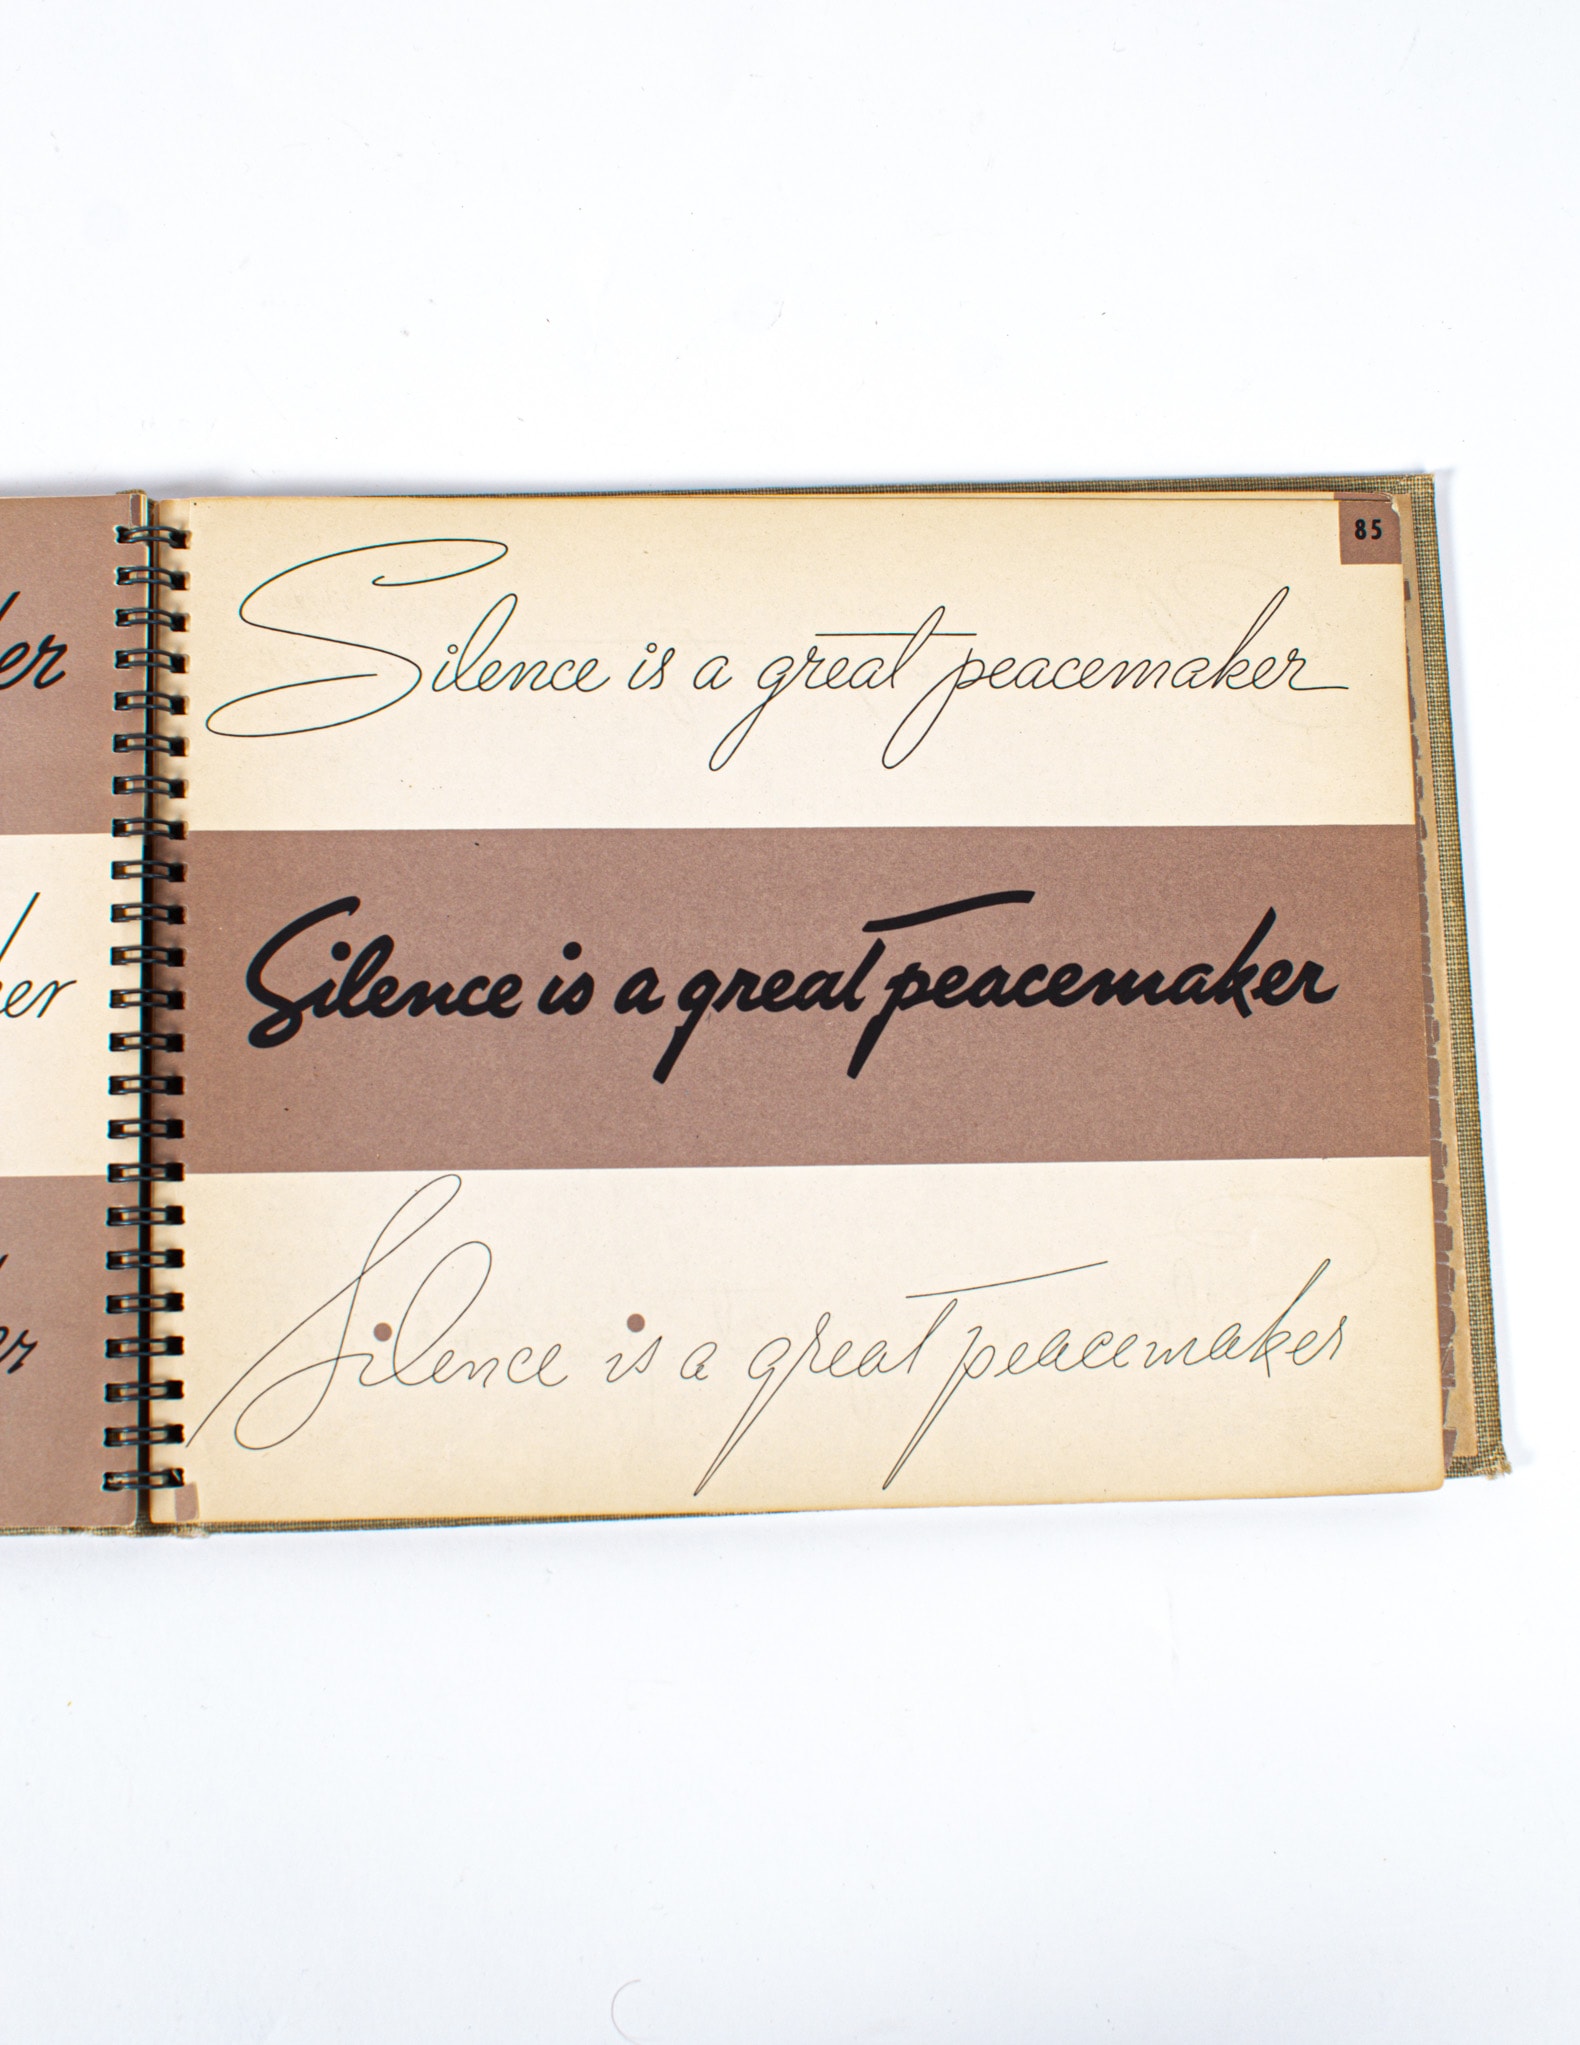 85
Silence is a great peacemaker
Silence is a great peacemaker
Silence is a great peacemaker